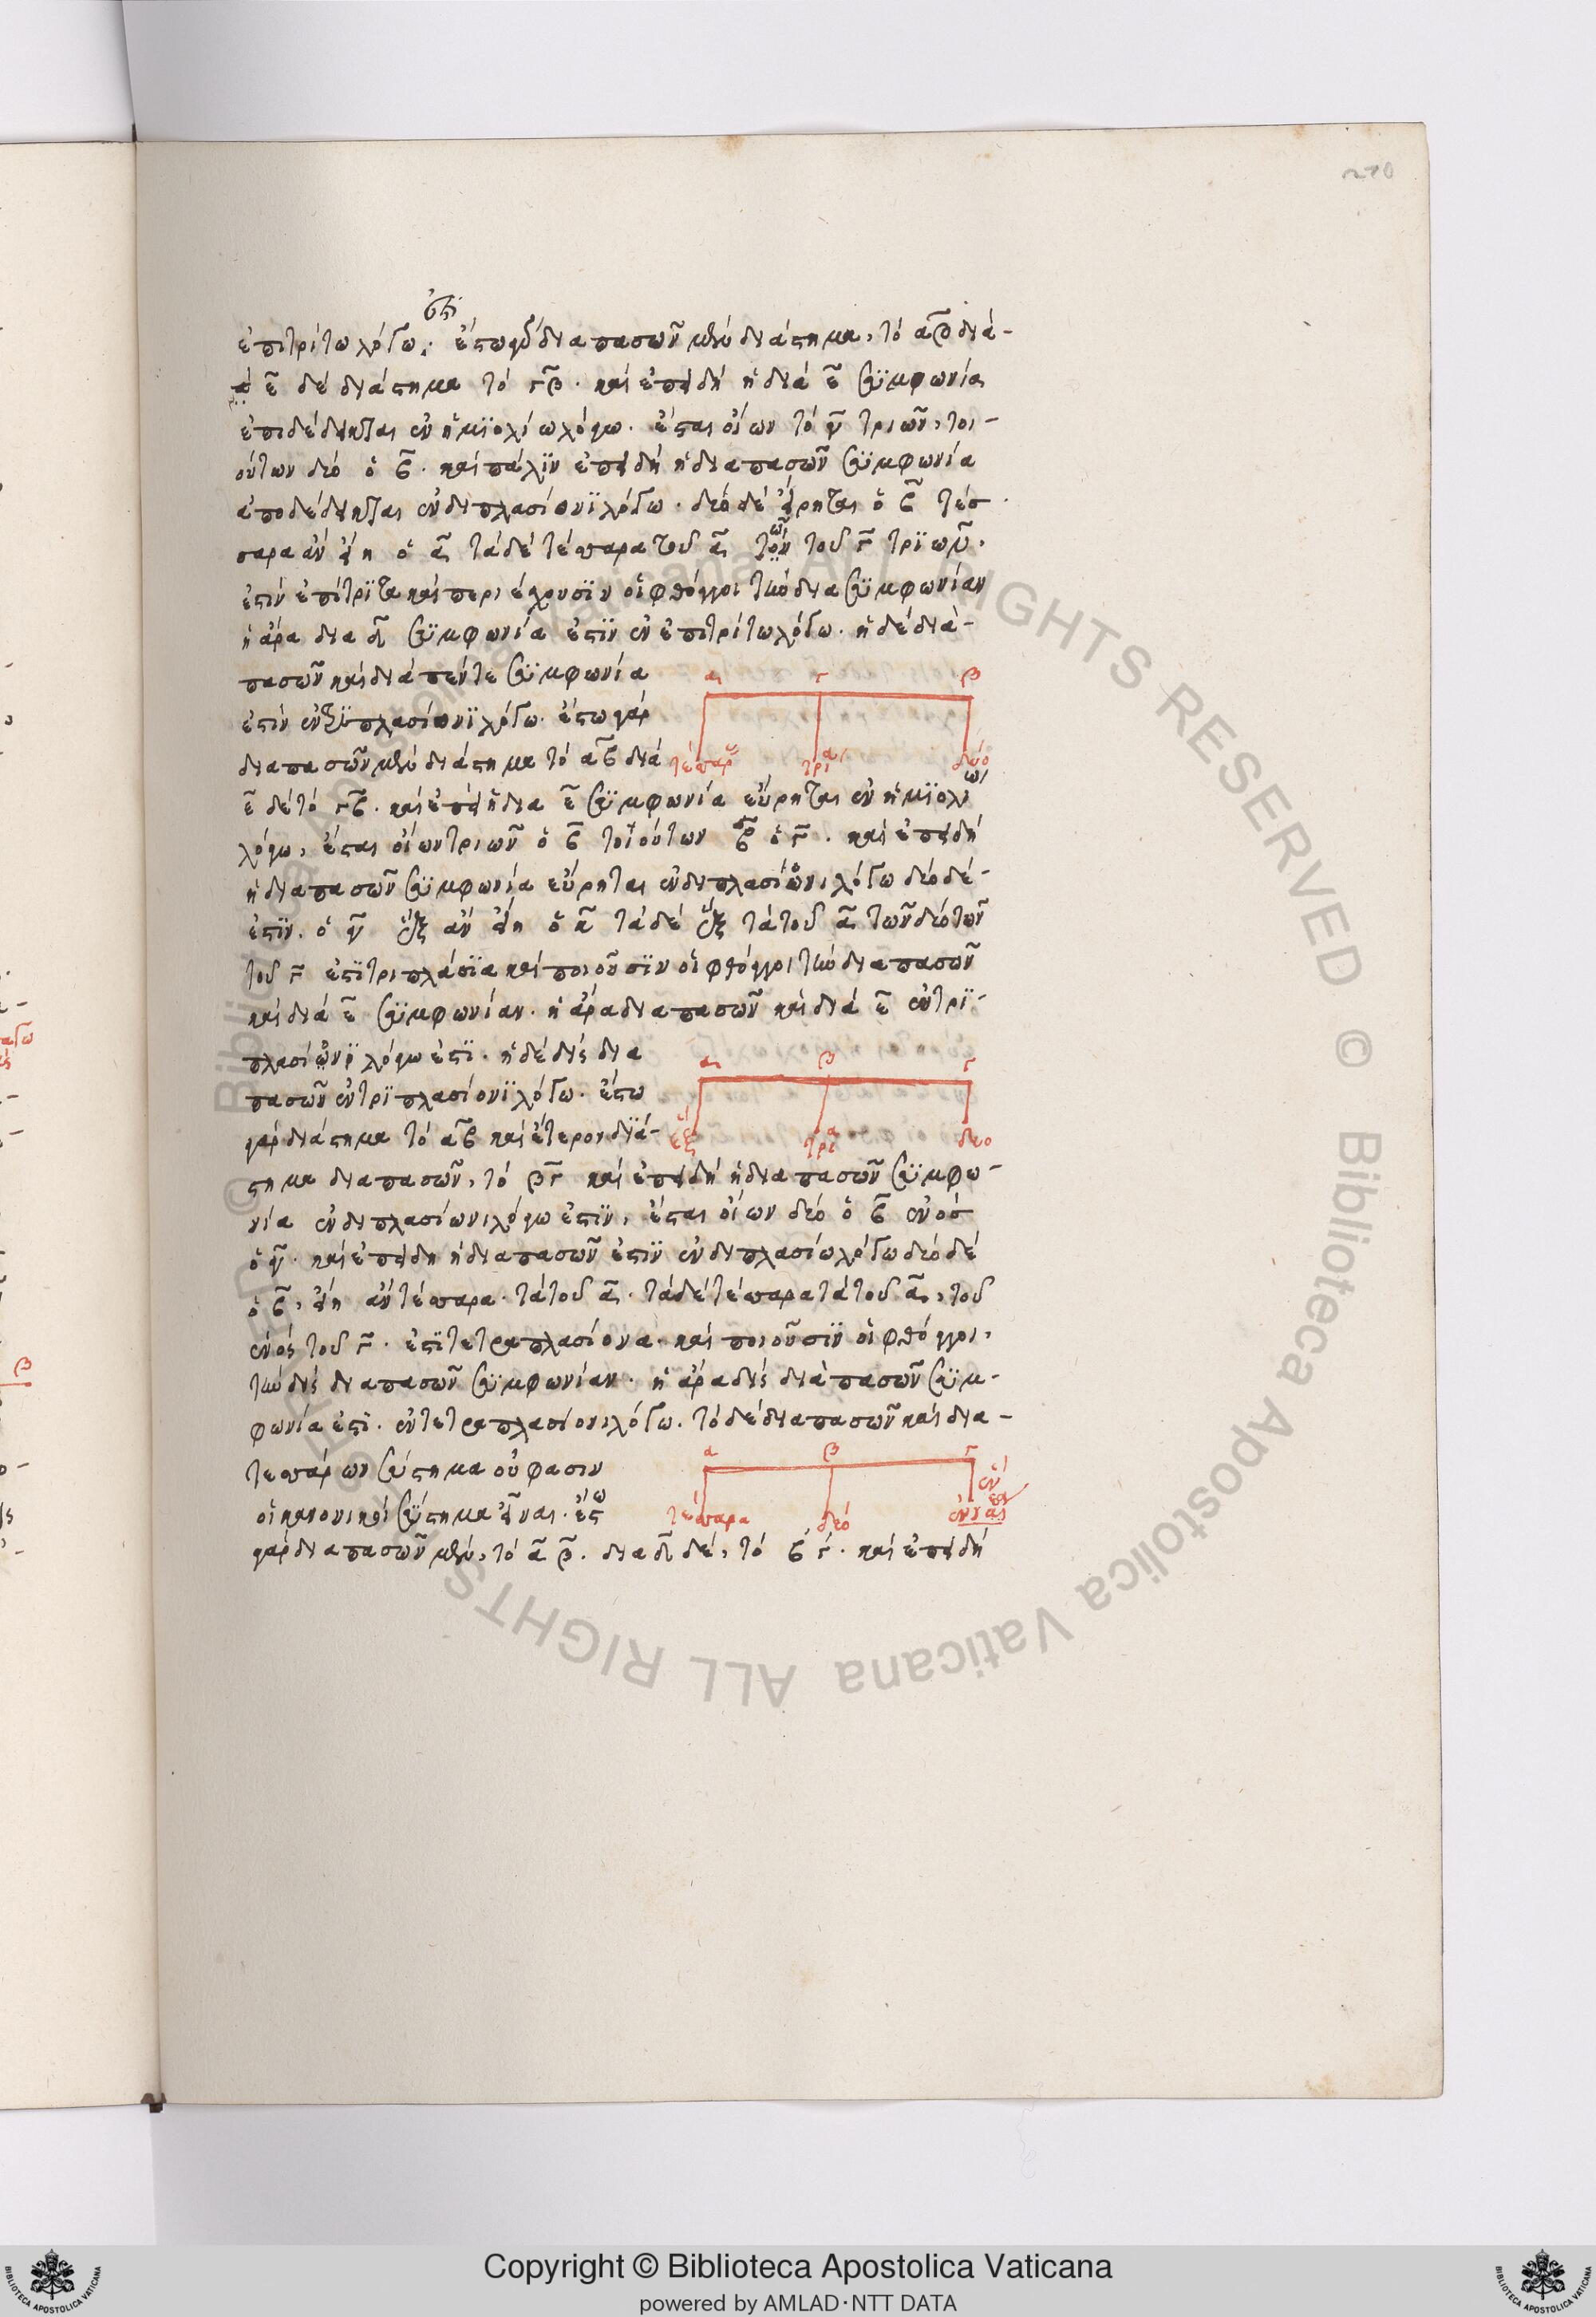 270
ἐστι
ἐπιτρίτω λόγω· ἔστω γὰρ διαπασῶν μὲν διάστημα, τὸ αβ διὰ-
ε̄ δὲ διάστημα τὸ γβ. καὶ ἐπειδὴ ἡ διὰ ε̄ συμφωνία
ἐπιδέδεικται ἐν ἡμϊολίω λόγω. ἔσται οἵων τὸ γ̄ τριῶν, τοι-
ούτων δύο ὁ β̄. καὶ πάλϊν ἐπειδὴ ἡ διαπασῶν συμφωνία
ἀποδέδεικται ἐν διπλασίονϊ λόγω. δύο δὲ εἴρηται ὁ β̄ τέσ
σαρα ἂν εἴη ὁ ᾱ τὰ δὲ τέσσαρα τοῦ ᾱ τῶν τοῦ γ̄ τρϊῶν,
ἐστὶν ἐπίτρϊτα καὶ περιέχουσϊν οἱ φθόγγοι τὴν δια συμφωνίαν
ἡ ἄρα δια δ̄ συμφωνία ἐστϊν ἐν ἐπιτρίτω λόγω. ἡ δὲ διὰ-
πασῶν καὶ διὰ πέντε συμφωνία
ἐστὶν ἐν τρϊπλασίονϊ λόγω. ἔστω γὰρ
διαπασῶν μὲν διάστημα τὸ αβ διὰ
α γ β
τέσσαρα τρία δύο
ε̄ δὲ τὸ γβ. καὶ ἐπεὶ ἡ δια ε̄ συμφωνία εὕρηται ἐν ἡμϊολίω
λόγω, ἔσται οἵων τριῶν ὁ β̄ τοϊούτων β̄ ὁ γ̄. καὶ ἐπειδὴ
ἡ διαπασῶν συμφωνία εὕρηται ἐν διπλασίονι λόγω δύο δέ-
ἐστϊν. ὁ γ̄ ἓξ ἂν εἴη ὁ ᾱ τὰ δὲ ἓξ τὰ τοῦ ᾱ τῶν δύο τῶν
τοῦ γ̄ ἐστϊ τριπλάσϊα καὶ ποιοῦσϊν οἱ φθόγγοι τὴν διαπασῶν
καὶ διὰ ε̄ συμφωνίαν. ἡ ἄρα διαπασῶν καὶ διὰ ε̄ ἐν τρϊ-
πλασίονϊ λόγω ἐστϊ. ἡ δὲ δὶς δια
πασῶν ἐν τρϊπλασίονϊ λόγω. ἔστω
γὰρ διάστημα τὸ αβ καὶ ἕτερον διά-
α β γ
ἓξ τρία δύο
στημα διαπασῶν, τὸ βγ καὶ ἐπειδὴ ἡ διαπασῶν συμφω-
νία ἐν διπλασίωνι λόγω ἐστϊν, ἔσται οἵων δύο ὁ β̄ ἑνὸς
ὁ γ̄. καὶ ἐπειδὴ ἡ διαπασῶν ἐστϊν ἐν διπλασίω λόγω δύο δὲ
ὁ β̄, εἴη ἂν τέσσαρα. τὰ τοῦ ᾱ. τὰ δὲ τέσσαρα τὰ τοῦ ᾱ, τοῦ
ἑνὸς τοῦ γ̄. ἐστϊ τετραπλασίονα. καὶ ποιοῦσϊν οἱ φθόγγοι,
τὴν δὶς διαπασῶν συμφωνίαν. ἡ ἄρα δὶς διὰ πασῶν συμ-
φωνία ἐστϊ. ἐν τετραπλασίονι λόγω. τὸ δὲ διαπασῶν καὶ δια-
τεσσάρων σύστημα οὔ φασιν
οἱ κανονικοὶ σύστημα εἶναι. ἔστω
α β γ
τέσσαρα δύο
γὰρ διαπασῶν μὲν, τὸ ᾱ β̄. δια δ̄ δὲ, τὸ β γ. καὶ ἐπειδὴ
Copyright © Biblioteca Apostolica Vaticana
powered by AMLAD·NTT DATA